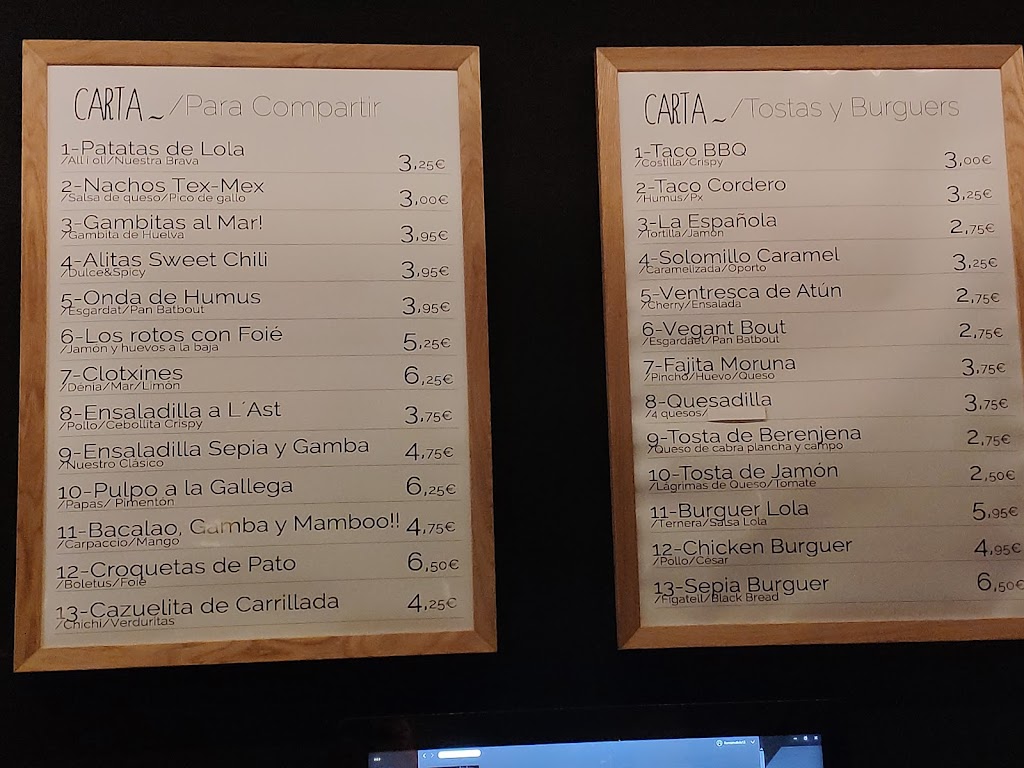 CARTA~/Para Compartir
1-Patatas de Lola
/All i oli/Nuestra Brava
3,25€
2-Nachos Tex-Mex
/Salsa de queso/Pico de gallo
3,00€
3-Gambitas al Mar!
/Gambita de Huelva
3,95€
4-Alitas Sweet Chili
/Dulce&Spicy
3,95€
5-Onda de Humus
/Esgardat/Pan Batbout
3,95€
6-Los rotos con Foié
/Jamón y huevos a la baja
5,25€
7-Clotxines
/Dénia/Mar/Limón
6,25€
8-Ensaladilla a L´Ast
/Pollo/Cebollita Crispy
3,75€
9-Ensaladilla Sepia y Gamba
/Nuestro Clásico
4,75€
10-Pulpo a la Gallega
/Papas/ Pimentón
6,25€
11-Bacalao, Gamba y Mamboo!!
/Carpaccio/Mango
4,75€
12-Croquetas de Pato
/Boletus/Foie
6,50€
13-Cazuelita de Carrillada
/Chichi/Verduritas
4,25€
CARTA~/Tostas y Burguers
1-Taco BBQ
/Costilla/Crispy
3,00€
2-Taco Cordero
/Humus/Px
3,25€
3-La Española
/Tortilla/Jamón
2,75€
4-Solomillo Caramel
/Caramelizada/Oporto
3,25€
5-Ventresca de Atún
/Cherry/Ensalada
2,75€
6-Vegant Bout
/Esgardaet/Pan Batbout
2,75€
7-Fajita Moruna
/Pincho/Huevo/Queso
3,75€
8-Quesadilla
/4 quesos/
3,75€
9-Tosta de Berenjena
/Queso de cabra plancha y campo
2,75€
10-Tosta de Jamón
/Lágrimas de Queso/Tomate
2,50€
11-Burguer Lola
/Ternera/Salsa Lola
5,95€
12-Chicken Burguer
/Pollo/César
4,95€
13-Sepia Burguer
/Figatell/Black Bread
6,50€